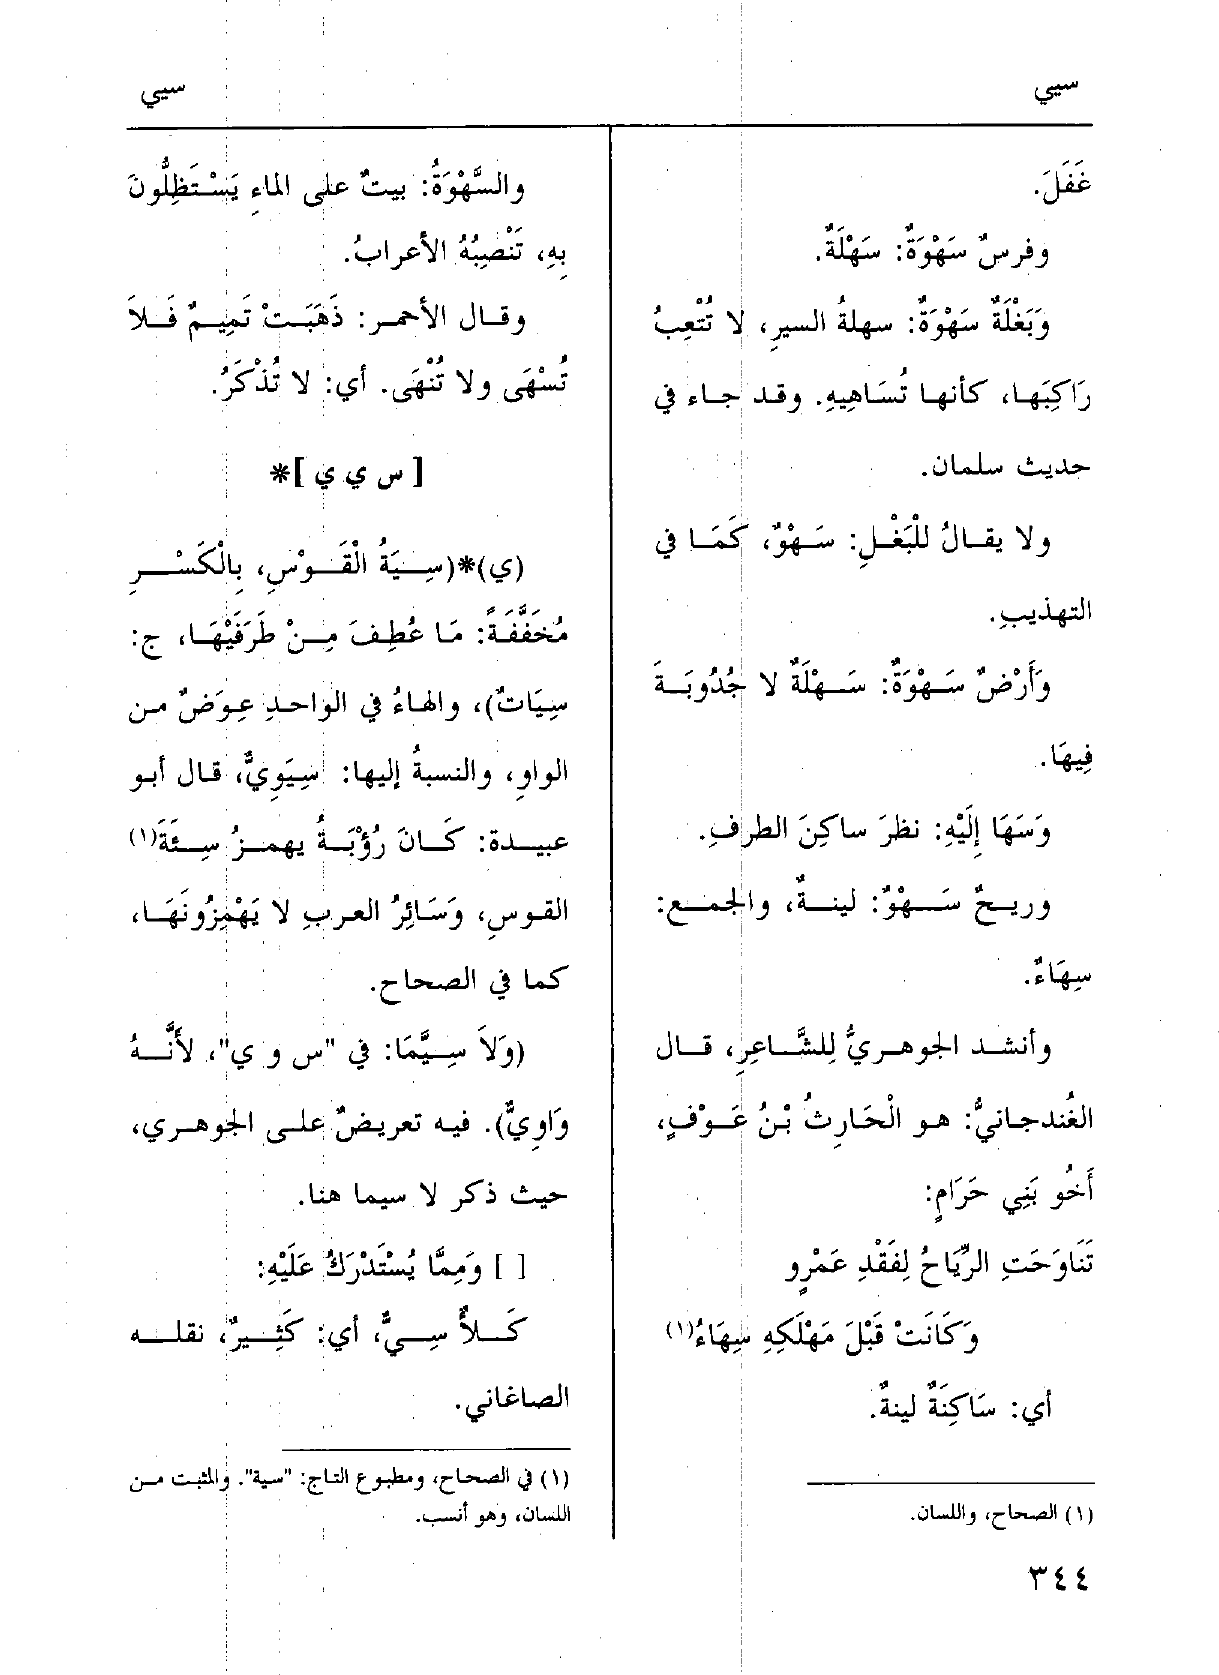 سيي
سيي
غَفَلَ.
وفرسٌ سَهْوَةٌ: سَهْلَةٌ.
وَبَغْلَةٌ سَهْوَةٌ: سهلةُ السيرِ، لا تُتْعِبُ
رَاكِبَهَا، كأنها تُسَاهِيهِ. وقد جاء في
حديث سلمان.
ولا يقالُ للْبَغْلِ: سَهْوٌ، كَمَا في
التهذيبِ.
وَأَرْضٌ سَهْوَةٌ: سَهْلَةٌ لا جُدُوبَةَ
فِيهَا.
وَسَهَا إِلَيْهِ: نظرَ ساكِنَ الطرفِ.
وريحٌ سَهْوٌ: لينةٌ، والجمعُ:
سِهَاءٌ.
وأنشد الجوهريُّ لِلشَّاعِرِ، قال
الغُندجانيُّ: هو الْحَارِثُ بْنُ عَوْفٍ،
أَخُو بَنِي حَرَامٍ:
تَنَاوَحَتِ الرِّيَاحُ لِفَقْدِ عَمْرٍو
وَكَانَتْ قَبْلَ مَهْلَكِهِ سِهَاءُ(١)
أي: سَاكِنَةٌ لينةٌ.
(١) الصحاح، واللسان.
والسَّهْوَةُ: بيتٌ على الماءِ يَسْتَظِلُّونَ
بِهِ، تَنْصِبُهُ الأعرابُ.
وقال الأحمر: ذَهَبَتْ تَمِيمٌ فَلاَ
تُسْهَى ولا تُنْهَى. أي: لا تُذْكَرُ.
[ س ي ي ]*
(ي)*(سِيَةُ الْقَوْسِ، بِالْكَسْرِ
مُخَفَّفَةً: مَا عُطِفَ مِنْ طَرَفَيْهَا، ج:
سِيَاتٌ)، والهاءُ في الواحدِ عِوَضٌ من
الواوِ، والنسبةُ إليها: سِيَوِيٌّ، قال أبو
عبيدة: كَانَ رُؤْبَةُ يهمزُ سِئَةَ(١)
القوسِ، وَسَائِرُ العربِ لا يَهْمِزُونَهَا،
كما في الصحاح.
(وَلاَ سِيَّمَا: في "س و ي"، لأَنَّهُ
وَاوِيٌّ). فيه تعريضٌ على الجوهري،
حيث ذكر لا سيما هنا.
[ ] وَمِمَّا يُسْتَدْرَكُ عَلَيْهِ:
كَلأٌ سِيٌّ، أي: كَثِيرٌ، نقله
الصاغاني.
(١) في الصحاح، ومطبوع التاج: "سية". والمثبت من
اللسان، وهو أنسب.
٣٤٤